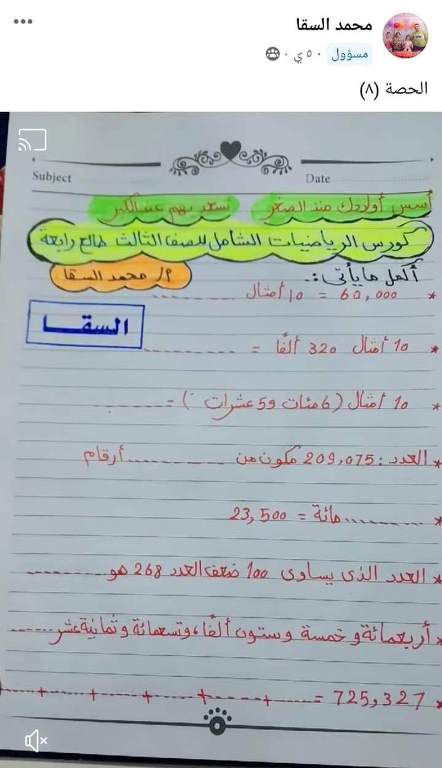 محمد السقا
مسؤول · ٥ ي ·
الحصة (٨)
Subject
Date
أسس أولادك منذ الصغر تسعد بهم عند الكبر
كورس الرياضيات الشامل للصف الثالث طالع رابعة
أ/ محمد السقا
أكمل ما يأتى :-
السقا
* 60,000 = 10 أمثال ..........
* 10 أمثال 320 ألفًا = ..........
* 10 أمثال (6 مئات و 5 عشرات) = ..........
* العدد : 209,075 مكون من .......... أرقام
* .......... مائة = 23,500
* العدد الذى يساوى 100 ضعف العدد 268 هو ..........
* أربعمائة و خمسة وستون ألفًا، وتسعمائة و ثمانية عشر ..........
* 725,327 = ..... + ..... + ..... + ..... + ..... + .....